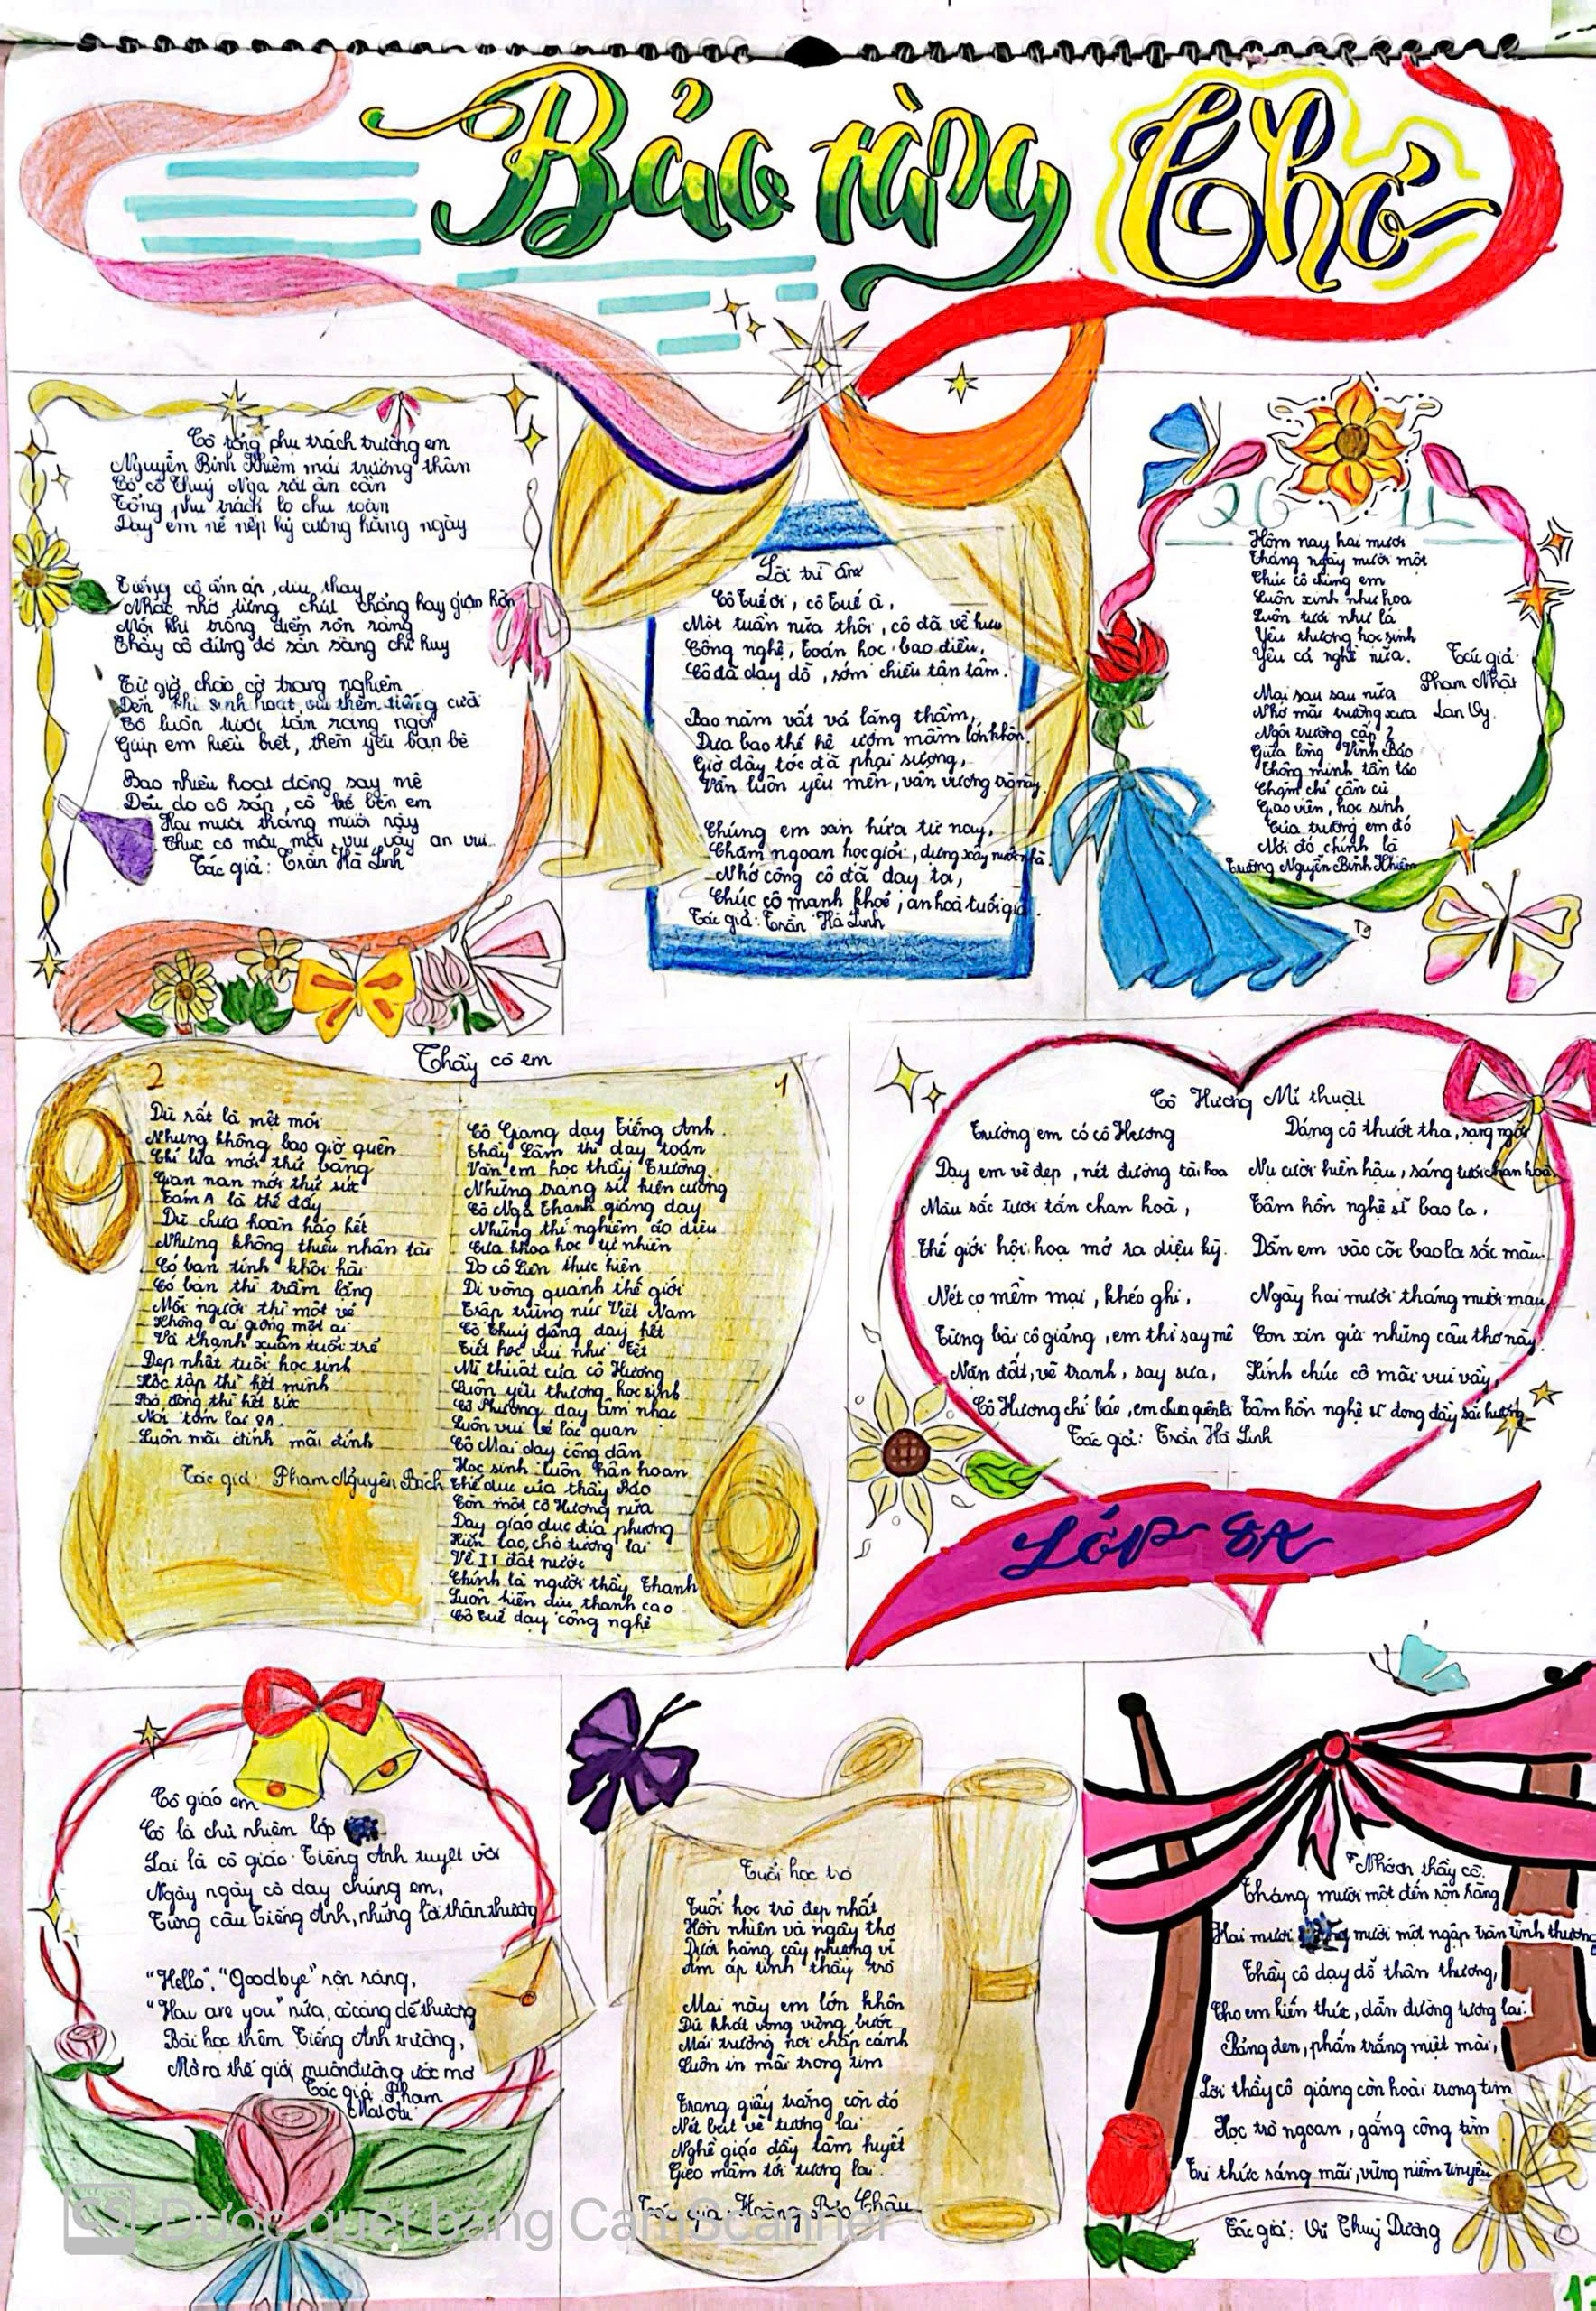 Báo tường Thơ
Cô tổng phụ trách trường em
Nguyễn Bỉnh Khiêm mái trường thân
Có cô Thuý Nga rất ân cần
Tổng phụ trách lo chu toàn
Dạy em nề nếp kỷ cương hằng ngày
Tiếng cô ấm áp, dịu thay
Nhắc nhở từng chút chẳng hay giận hờn
Mỗi khi trống điểm rộn ràng
Thấy cô đứng đó sẵn sàng chỉ huy
Từ giờ chào cờ trang nghiêm
Đến khi sinh hoạt, vui thêm tiếng cười
Cô luôn tươi tắn rạng ngời
Giúp em hiểu biết, thêm yêu bạn bè
Bao nhiêu hoạt động say mê
Đều do cô sắp, cô kề bên em
Hai mươi tháng mười này
Chúc cô mãi mãi vui vầy an vui.
Tác giả: Trần Hà Linh
Lời tri ân
Cô Tuế ơi, cô Tuế à,
Một tuần nữa thôi, cô đã về hưu
Công nghệ, toán học bao điều,
Cô đã dạy dỗ, sớm chiều tận tâm.
Bao năm vất vả lặng thầm,
Đưa bao thế hệ ươm mầm lớn khôn.
Giờ đây tóc đã phai sương,
Vẫn luôn yêu mến, vấn vương trò này.
Chúng em xin hứa từ nay,
Chăm ngoan học giỏi, dựng xây nước nhà.
Nhớ công cô đã dạy ta,
Chúc cô mạnh khoẻ, an hoà tuổi già.
Tác giả: Trần Hà Linh
20 11
Hôm nay hai mươi
Tháng ngày mười một
Chúc cô chúng em
Luôn xinh như hoa
Luôn tươi như lá
Yêu thương học sinh
Yêu cả nghề nữa.
Tác giả:
Phạm Nhật
Lan Vy.
Mai sau sau nữa
Nhớ mãi trường xưa
Ngôi trường cấp 2
Giữa lòng Vĩnh Bảo
Thông minh tần tảo
Chăm chỉ cần cù
Giáo viên, học sinh
Của trường em đó
Nơi đó chính là
Trường Nguyễn Bỉnh Khiêm
Thầy cô em
1
Cô Giang dạy Tiếng Anh.
Thầy Lãm thì dạy toán
Văn em học thầy Trường
Những trang sử kiên cường
Cô Nga Thanh giảng dạy
Những thí nghiệm ảo diệu
Của khoa học tự nhiên
Do cô Liên thực hiện
Đi vòng quanh thế giới
Trập trùng núi Việt Nam
Cô Thuý giảng dạy hết
Tiết học vui như Tết
Mĩ thuật của cô Hương
Luôn yêu thương học sinh
Cô Phương dạy âm nhạc
Luôn vui vẻ lạc quan
Cô Mai dạy công dân
Học sinh luôn hân hoan
Thể dục của thầy Bảo
Còn một cô Hương nữa
Dạy giáo dục địa phương
Kiến tạo cho tương lai
Về IT đất nước
Chính là người thầy Thanh
Luôn hiền dịu thanh cao
Cô Tuế dạy công nghệ
2
Dù rất là mệt mỏi
Nhưng không bao giờ quên
Chỉ lửa mới thử bằng
Gian nan mới thử sức
Tám A là thế đấy
Dù chưa hoàn hảo hết
Nhưng không thiếu nhân tài
Có bạn tính khôi hài
Có bạn thì trầm lặng
Mỗi người thì một vẻ
Không ai giống một ai
Và thanh xuân tuổi trẻ
Đẹp nhất tuổi học sinh
Học tập thì hết mình
Nói tóm lại 8A.
Luôn mãi đỉnh mãi đỉnh
Tác giả: Phạm Nguyên Bách
Cô Hương Mĩ thuật
Trường em có cô Hương
Dạy em vẽ đẹp, nét đường tài hoa
Màu sắc tươi tắn chan hoà,
Thế giới hội hoạ mở ra diệu kỳ.
Nét cọ mềm mại, khéo ghi,
Từng bài cô giảng, em thì say mê
Nặn đất, vẽ tranh, say sưa,
Cô Hương chỉ bảo, em chưa quên
Dáng cô thướt tha, rạng ngời
Nụ cười hiền hậu, sáng tươi chan hoà
Tâm hồn nghệ sĩ bao la,
Dẫn em vào cõi bao la sắc màu.
Ngày hai mươi tháng mười mau,
Con xin gửi những câu thơ này.
Kính chúc cô mãi vui vầy,
Tâm hồn nghệ sĩ dong đầy sắc hương
Tác giả: Trần Hà Linh
LỚP 8A
Cô giáo em
Cô là chủ nhiệm lớp
Lại là cô giáo Tiếng Anh tuyệt vời
Ngày ngày cô dạy chúng em,
Từng câu Tiếng Anh, những lời thân thương
"Hello", "Goodbye" rộn ràng,
"How are you" nữa, cô càng dễ thương
Bài học thêm Tiếng Anh trường,
Mở ra thế giới, muôn đường ước mơ
Tác giả: Phạm
Mai
Tuổi học trò
Tuổi học trò đẹp nhất
Hồn nhiên và ngây thơ
Dưới hàng cây phượng vĩ
Ấm áp tình thầy trò
Mai này em lớn khôn
Dù khát vọng vững bước
Mái trường nơi chắp cánh
Luôn in mãi trong tim
Trang giấy trắng còn đó
Nét bút vẽ tương lai
Nghề giáo đầy tâm huyết
Gieo mầm tới tương lai.
Tác giả: Hoàng Bảo Châu
Nhớ ơn thầy cô.
Tháng mười một đến rộn ràng
Hai mươi mười một ngập tràn tình thương
Thầy cô dạy dỗ thân thương,
Cho em kiến thức, dẫn đường tương lai.
Bảng đen, phấn trắng miệt mài,
Lời thầy cô giảng còn hoài trong tim
Học trò ngoan, gắng công tìm
Tri thức sáng mãi, vững niềm tin yêu
Tác giả: Vũ Thuỳ Dương
CS Được quét bằng CamScanner